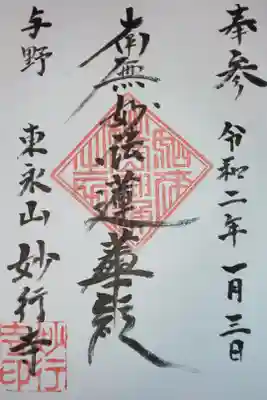 奉参 令和二年一月三日
南無妙法蓮華経
与野 東永山 妙行寺
妙行
寺印